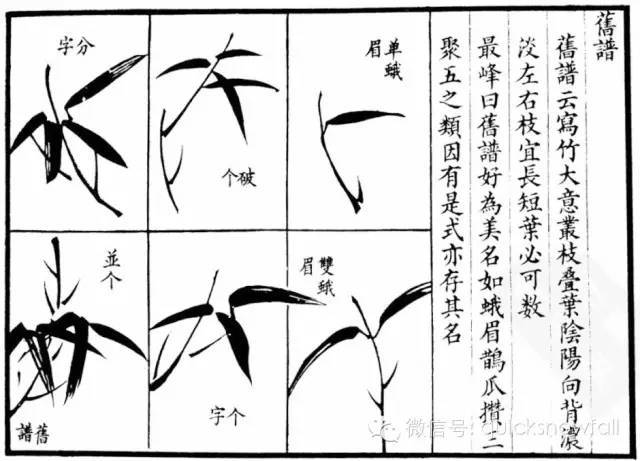 舊譜
舊譜云寫竹大意叢枝叠葉陰陽向背濃
淡左右枝宜長短葉必可数
最峰曰舊譜好為美名如蛾眉鵲瓜攢二
聚五之類因有是式亦存其名
单蛾
眉
破个
分字
雙蛾
眉
个字
並个
舊譜
微信号: quicksnowfall